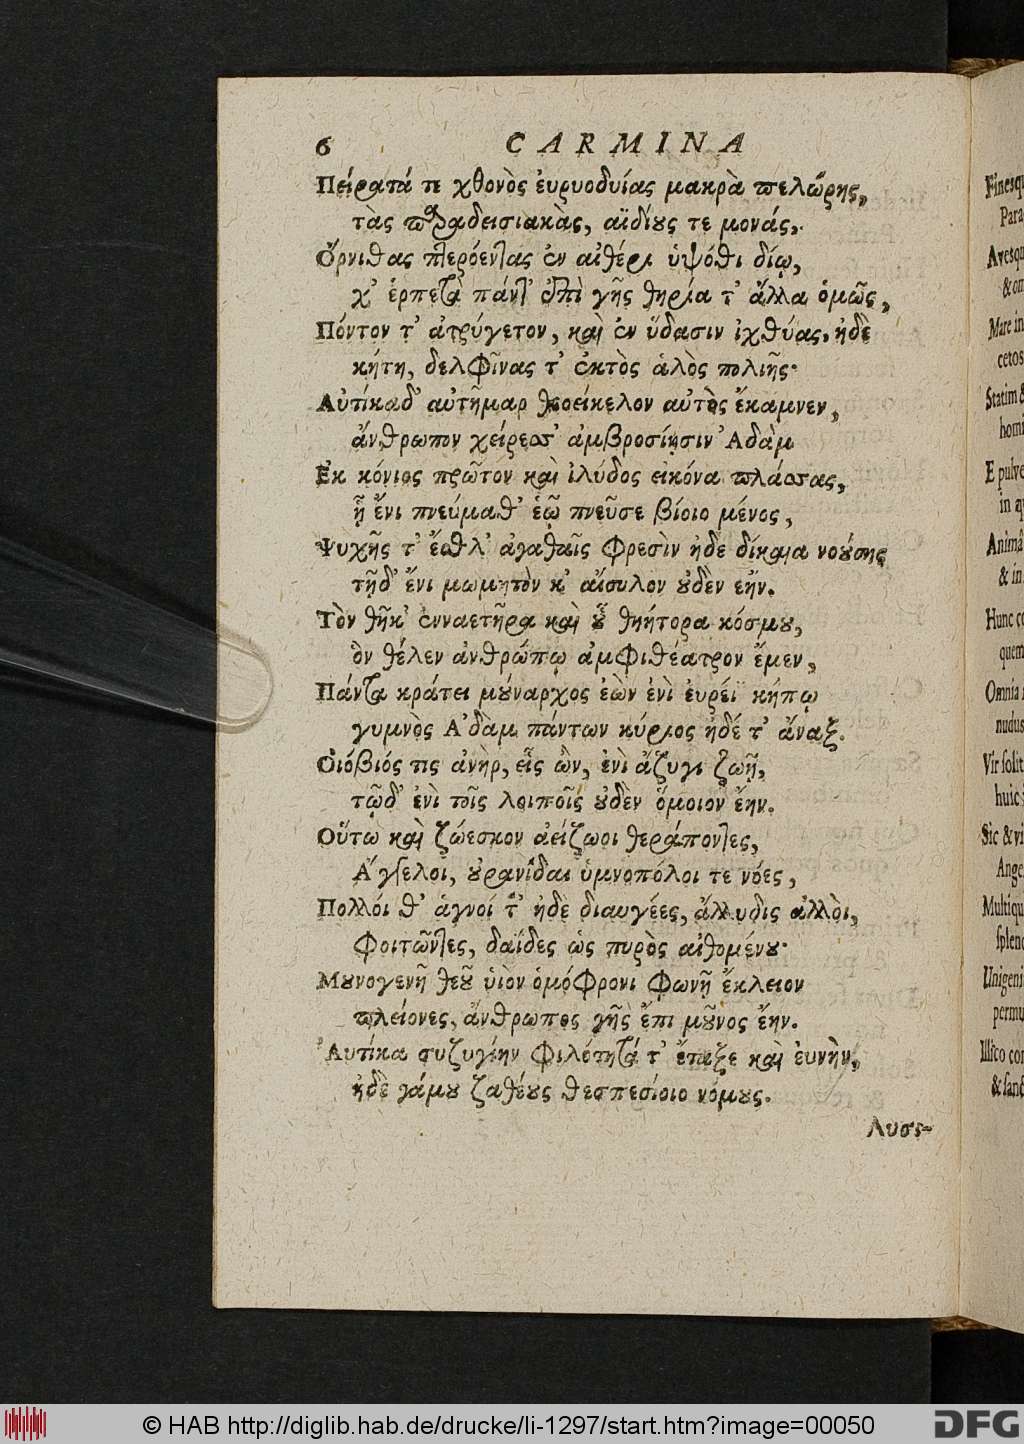 6 CARMINA
Πείρατά τε χθονὸς ἐυρυοδυίας μακρὰ πελώρης,
τὰς παραδεισιακὰς, αϊδίους τε μονάς,
Ὄρνιθας πτερόεντας ἐν αἰθέρι ὑψόθι δίῳ,
χ' ἑρπετὰ πάντ' ἐπὶ γῆς θηρία τ' ἄλλα ὁμῶς,
Πόντον τ' ἀτρύγετον, καὶ ἐν ὕδασιν ἰχθύας, ἠδὲ
κήτη, δελφῖνας τ' ἐκτὸς ἁλὸς πολιῆς·
Αὐτίκα δ' αὐτῆμαρ θεοείκελον αὐτὸς ἔκαμνεν,
ἄνθρωπον χείρεσσ' ἀμβροσίησιν Ἀδὰμ
Ἐκ κόνιος πρῶτον καὶ ἰλύδος εἰκόνα πλάσσας,
ᾗ ἔνι πνεύμαθ' ἑῷ πνεῦσε βίοιο μένος,
Ψυχῆς τ' ἔσθλ' ἀγαθαῖς φρεσὶν ἠδὲ δίκαια νούσης
τῇδ' ἔνι μωμητὸν κ' αἴσυλον οὐδὲν εήν.
Τὸν θῆκ' ἐνναετῆρα καὶ οὗ θηήτορα κόσμου,
ὃν θέλεν ἀνθρώπῳ ἀμφιθέατρον ἔμεν,
Πάντα κράτει μούναρχος ἐὼν ἐνὶ ἐυρέϊ κήπῳ
γυμνὸς Ἀδὰμ πάντων κύριος ἠδέ τ' ἄναξ.
Οἰόβιός τις ἀνὴρ, εἷς ὢν, ἐνὶ ἄζυγι ζωῇ,
τῷδ' ἐνὶ τοῖς λοιποῖς οὐδὲν ὅμοιον ἔην.
Οὕτω καὶ ζώεσκον ἀείζωοι θεράποντες,
Ἄγγελοι, οὐρανίδαι ὑμνοπόλοι τε νόες,
Πολλοί θ' ἁγνοί τ' ἠδὲ διαυγέες, ἄλλυδις ἀλλοι,
Φοιτῶντες, δαΐδες ὡς πυρὸς αἰθομένου·
Μουνογενῆ θεοῦ ὑιὸν ὁμόφρονι φωνῇ ἔκλειον
πλείονες, ἄνθρωπος γῆς ἔπι μοῦνος ἔην.
Ἀυτίκα συζυγίην φιλότητά τ' ἔταξε καὶ ἐυνὴν,
ἠδὲ γάμου ζαθέους θεσπεσίοιο νόμους.
Λυσι-
Finesqu
Para
Avesqu
& om
Mare in
cetos
Statim &
homi
E pulve
in q
Animâ
& in
Hunc co
quem
Omnia
nudus
Vir solit
huic
Sic & vi
Ange
Multiqu
splend
Unigeni
permu
Illico con
& sanct
© HAB http://diglib.hab.de/drucke/li-1297/start.htm?image=00050
DFG